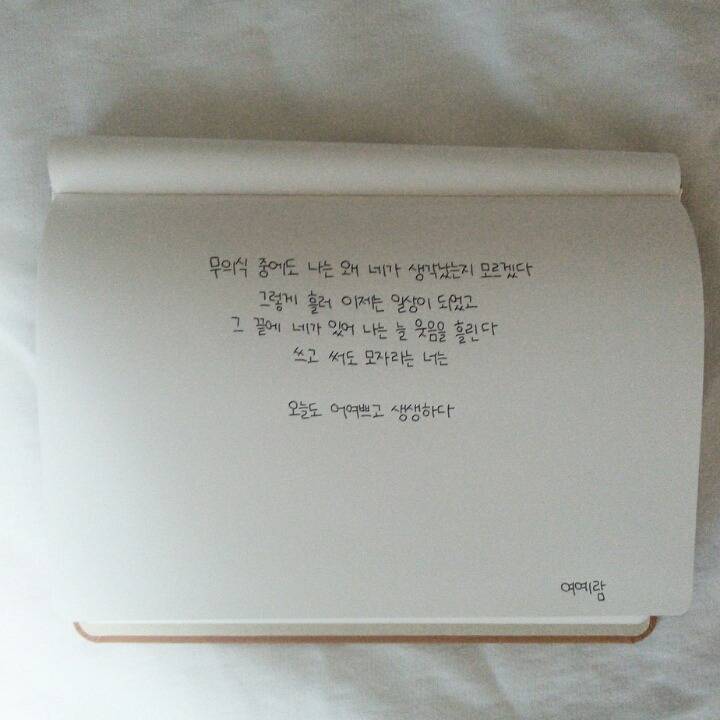 무의식 중에도 나는 왜 네가 생각났는지 모르겠다
그렇게 흘러 이제는 일상이 되었고
그 끝에 네가 있어 나는 늘 웃음을 흘린다
쓰고 써도 모자라는 너는
오늘도 어여쁘고 생생하다
여예람